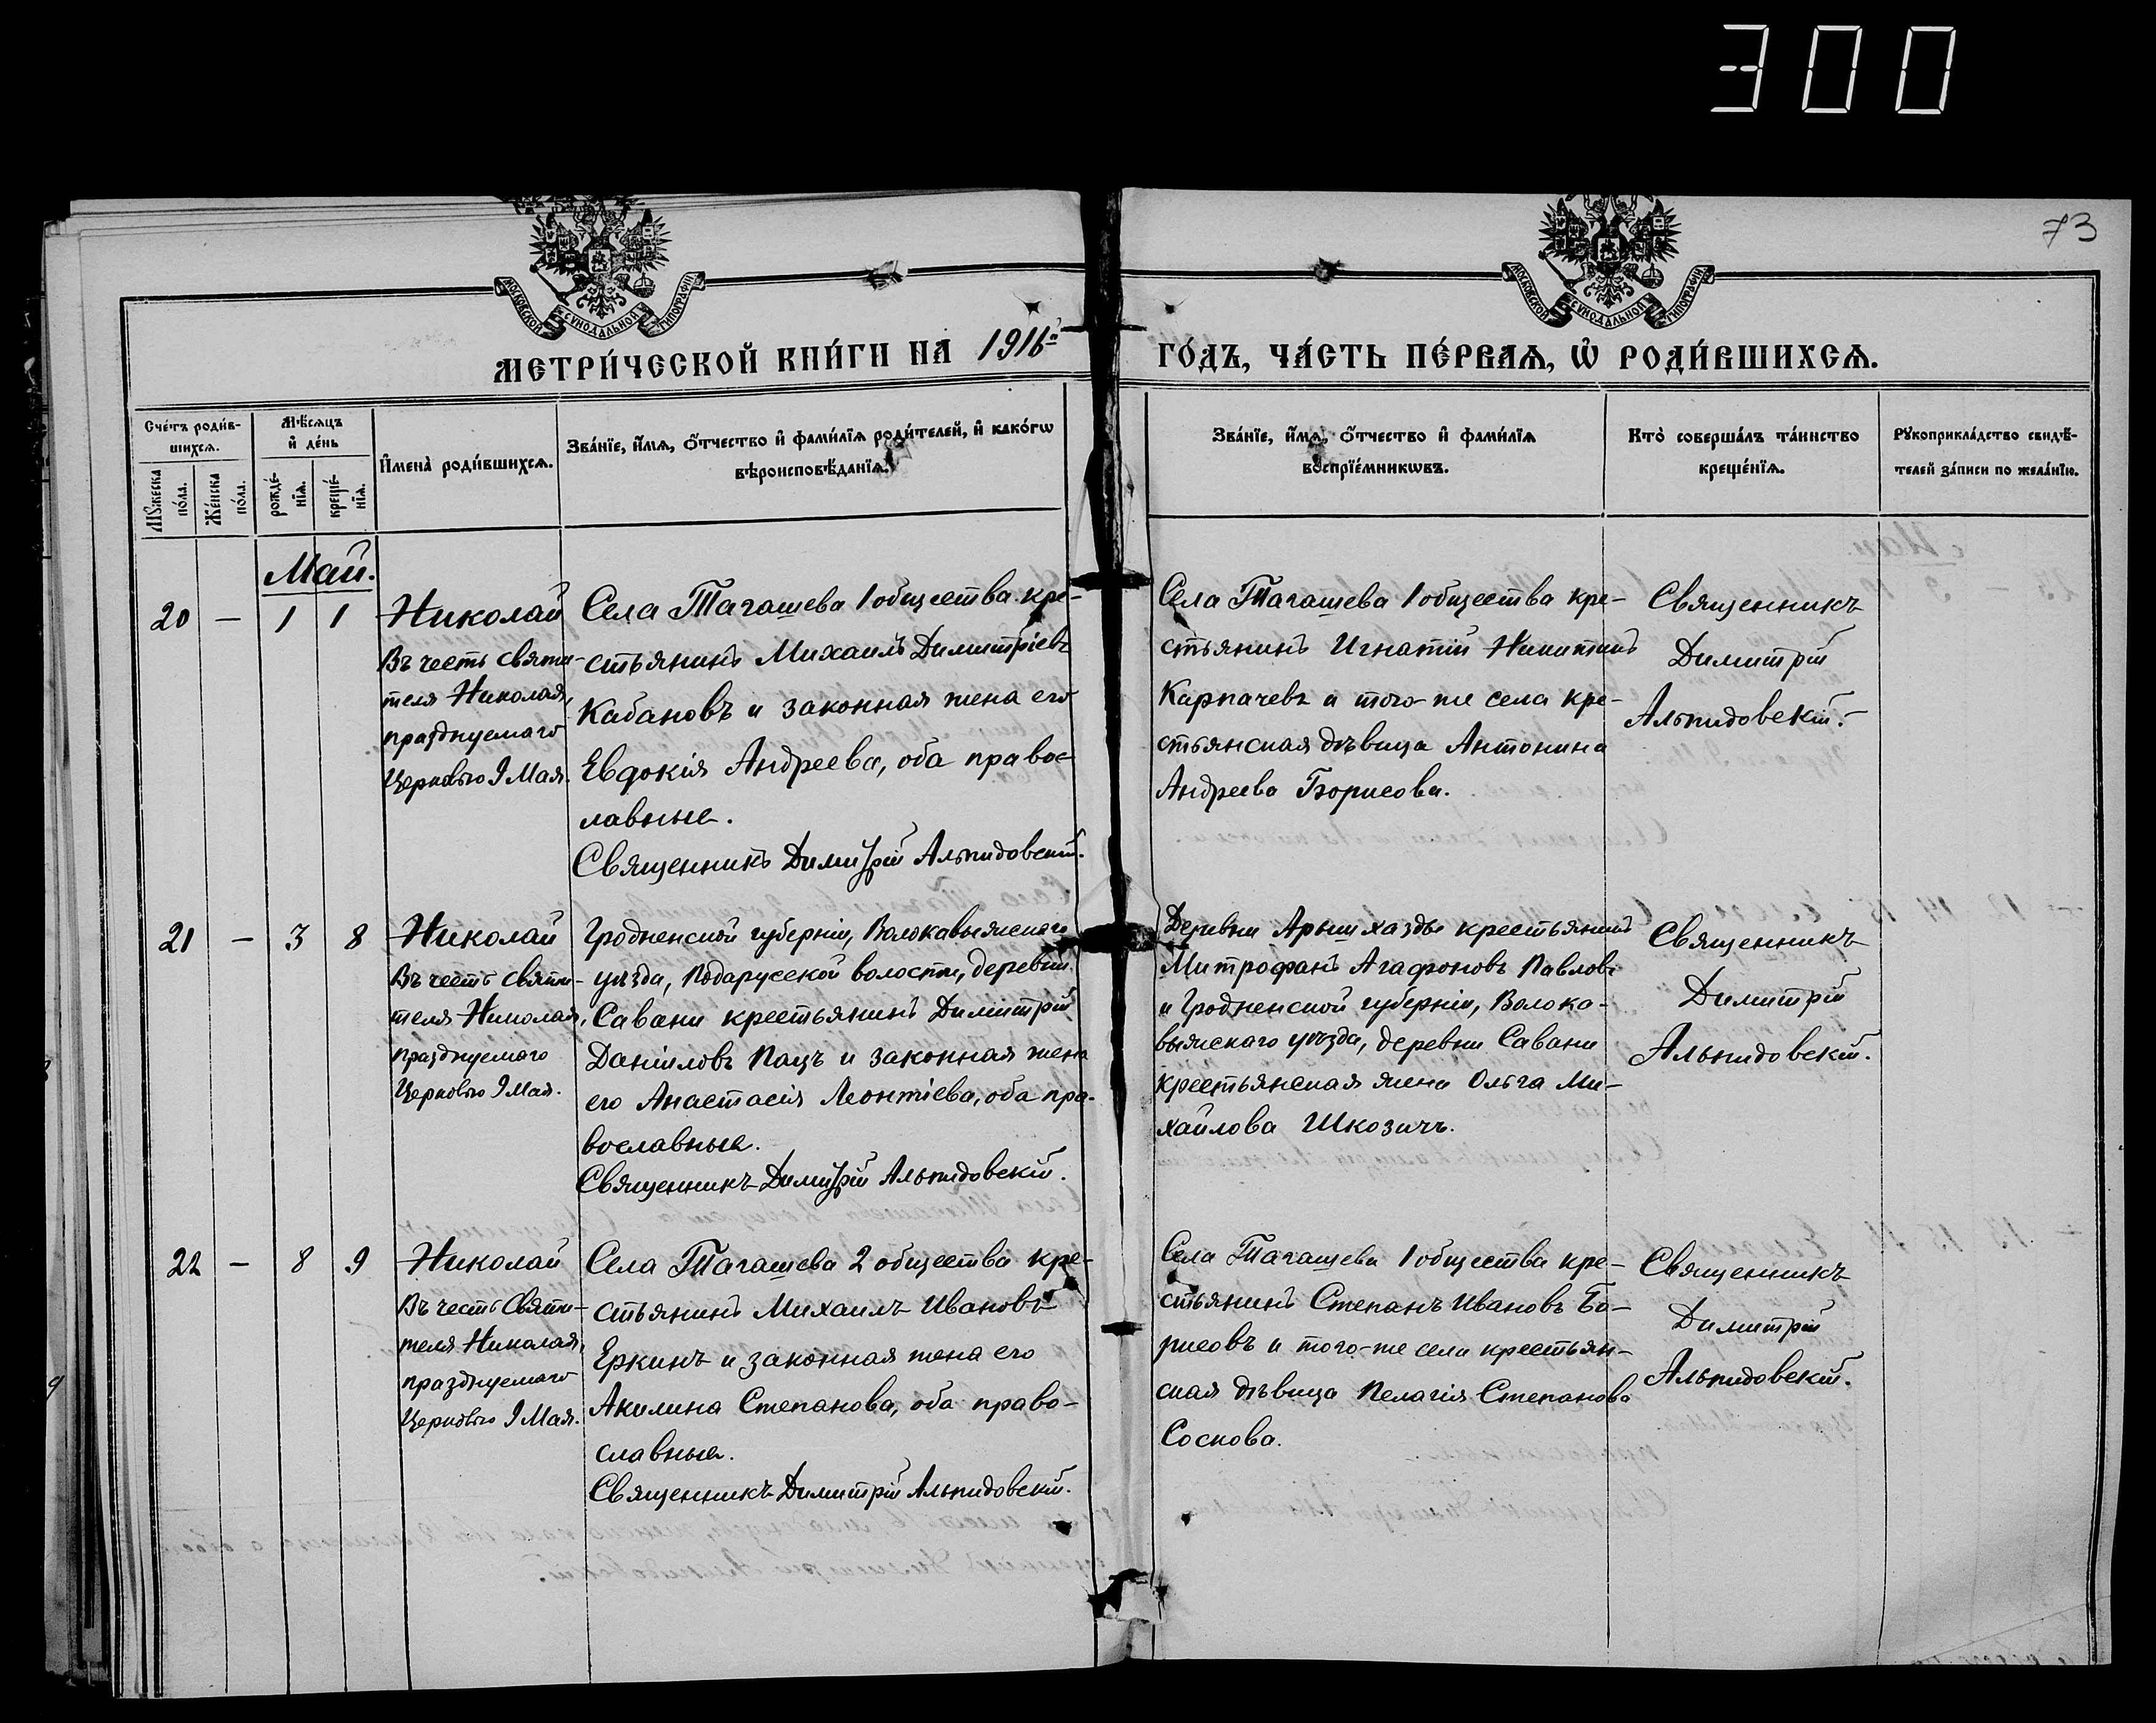 300
73
МОСКОВСКОЙ СѴНОДАЛЬНОЙ ТИПОГРАФІИ
МОСКОВСКОЙ СѴНОДАЛЬНОЙ ТИПОГРАФІИ
МЕТРИ́ЧЕСКОЙ КНИ́ГИ НА 1916й
ГО́ДЪ, ЧА́СТЬ ПЕ́РВАѦ, Ѡ҆ РОДИ́ВШИХСѦ.
Сче́тъ роди́в-
шихсѧ.
Мꙋжеска по́ла.
Же́нска по́ла.
Мѣ́сѧцъ
и҆ де́нь
рожде́-
нїѧ.
креще́-
нїѧ.
И҆мена̀ роди́вшихсѧ.
Зва́нїе, и҆́мѧ, ѻ҆́тчество и҆ фами́лїѧ роди́телей, и҆ како́гѡ
вѣроисповѣ́данїѧ.
Зва́нїе, и҆́мѧ, ѻ҆́тчество и҆ фами́лїѧ
воспрїе́мникѡвъ.
Кто̀ соверша́лъ та́инство
креще́нїѧ.
Рꙋкоприкла́дство свидѣ́-
телей за́писи по жела́нїю.
Май.
20 — 1 1
Николай
Въ честь святи-
теля Николая,
празднуемаго
Церковью 9 Мая.
Села Тагашева 1 общества кре-
стьянинъ Михаилъ Димитріевъ
Кабановъ и законная жена его
Евдокія Андреева, оба правос-
лавные.
Священникъ Димитрій Альпидовскій.
Села Тагашева 1 общества кре-
стьянинъ Игнатій Никитинъ
Карпачевъ и того-же села кре-
стьянская дѣвица Антонина
Андреева Борисова.
Священникъ
Димитрій
Альпидовскій.
21 — 3 8
Николай
Въ честь святи-
теля Николая,
празднуемаго
Церковью 9 Мая.
Гродненской губерніи, Волокавыжскаго
уѣзда, Подарусской волости, деревни
Савани крестьянинъ Димитрій
Даніиловъ Пацъ и законная жена
его Анастасія Леонтіева, оба пра-
вославные.
Священникъ Димитрій Альпидовскій.
Деревни Арышхазды крестьянинъ
Митрофанъ Агафоновъ Павловъ
и Гродненской губерніи, Волока-
выжскаго уѣзда, деревни Савани
крестьянская жена Ольга Ми-
хайлова Шкозичъ.
Священникъ
Димитрій
Альпидовскій.
22 — 8 9
Николай
Въ честь Святи-
теля Николая,
празднуемаго
Церковью 9 Мая.
Села Тагашева 2 общества кре-
стьянинъ Михаилъ Ивановъ
Еркинъ и законная жена его
Акилина Степанова, оба право-
славные.
Священникъ Димитрій Альпидовскій.
Села Тагашева 1 общества кре-
стьянинъ Степанъ Ивановъ Бо-
рисовъ и того-же села крестьян-
ская дѣвица Пелагія Степанова
Соснова.
Священникъ
Димитрій
Альпидовскій.